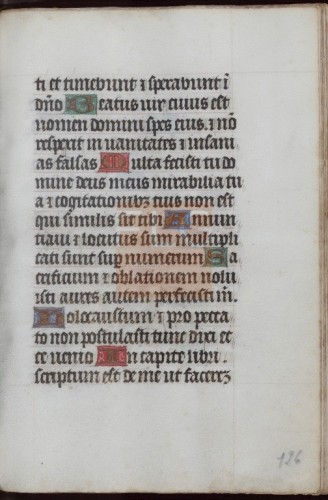 ti et timebunt ⁊ sperabunt ī
dn̄o Beatus uir cuius est
nomen domini spes eius. ⁊ nō
respexit in uanitates ⁊ insani
as falsas Multa fecisti tu do
mine deus meus mirabilia tu
a ⁊ cogitationibꝫ tuis non est
qui similis sit tibi Annun
tiaui ⁊ locutus sum multipli
cati sunt sup̄ numerum Sa
crificium ⁊ oblationem nolu
isti aures autem perfecisti m̄.
Holocaustum ⁊ pro pecca
to non postulasti tunc dixi et
ce uenio In capite libri.
scriptum est de me ut facereꝫ
126